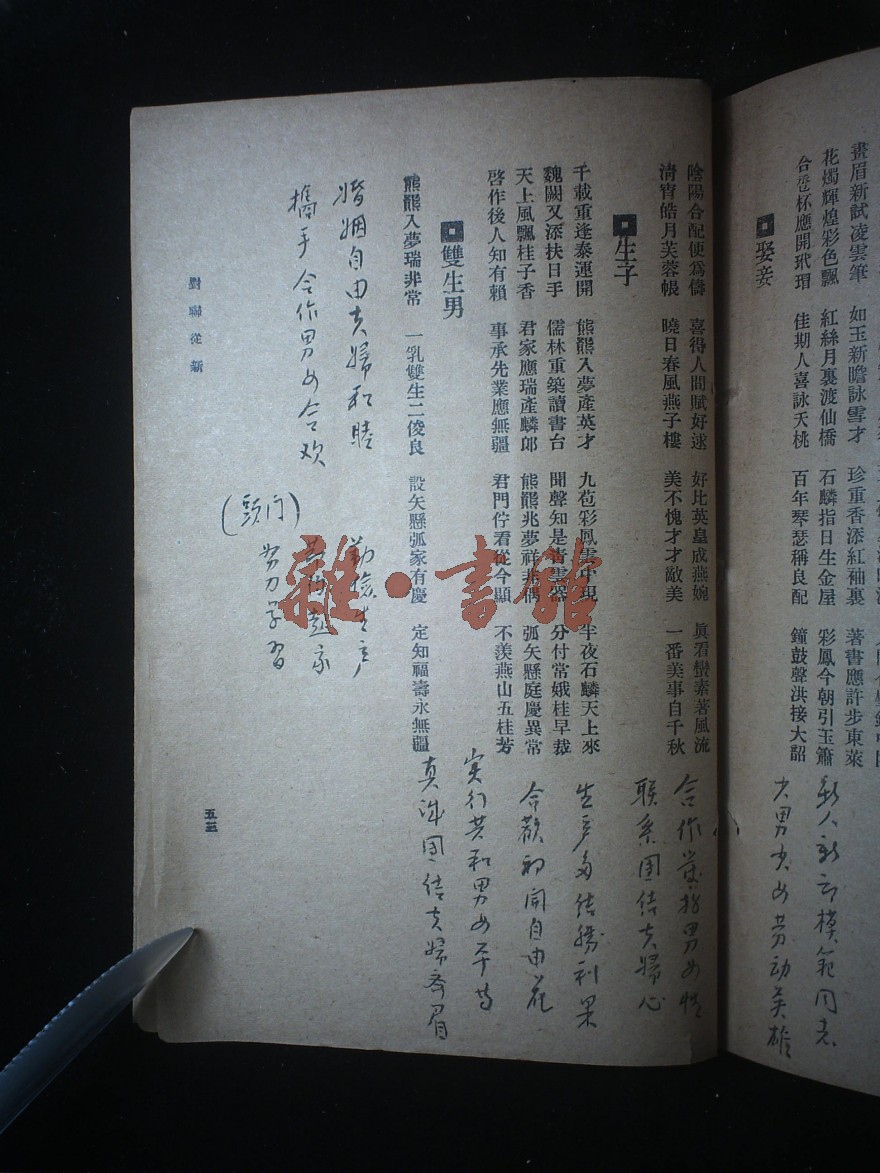 畫眉新試凌雲筆　如玉新瞻詠雪才　珍重香添紅袖裏　著書應許步東萊
花燭輝煌彩色飄　紅絲月裏渡仙橋　石麟指日生金屋　彩鳳今朝引玉簫
合卺杯應開玳瑁　佳期人喜詠夭桃　百年琴瑟稱良配　鐘鼓聲洪接大韶
新人新郎模範同志
少男少女劳动英雄
娶妾
陰陽合配便爲儔　喜得人間賦好逑　好比英皇成燕婉　眞看蠻素著風流
清宵皓月芙蓉帳　曉日春風燕子樓　美不愧才才敵美　一番美事自千秋
合作發揚男女情
联系團结夫婦心
生子
千載重逢泰運開　熊羆入夢產英才　九苞彩鳳雲中現　半夜石麟天上來
魏闕又添扶日手　儒林重築讀書台　聞聲知是青雲器　分付常娥桂早裁
天上風飄桂子香　君家應瑞產麟郎　熊羆兆夢祥非偶　弧矢懸庭慶異常
啓作後人知有賴　事承先業應無疆　君門佇看從今顯　不羨燕山五桂芳
生产多结勝利果
合歡初開自由花
雙生男
熊羆入夢瑞非常　一乳雙生二俊良　設矢懸弧家有慶　定知福壽永無疆
实行共和男女平等
真誠團结夫婦齐眉
婚姻自由夫婦和睦
攜手合作男女合欢
勤儉生产
劳动起家
努力学习
(頭门)
對聯從新
五三
雜·書館